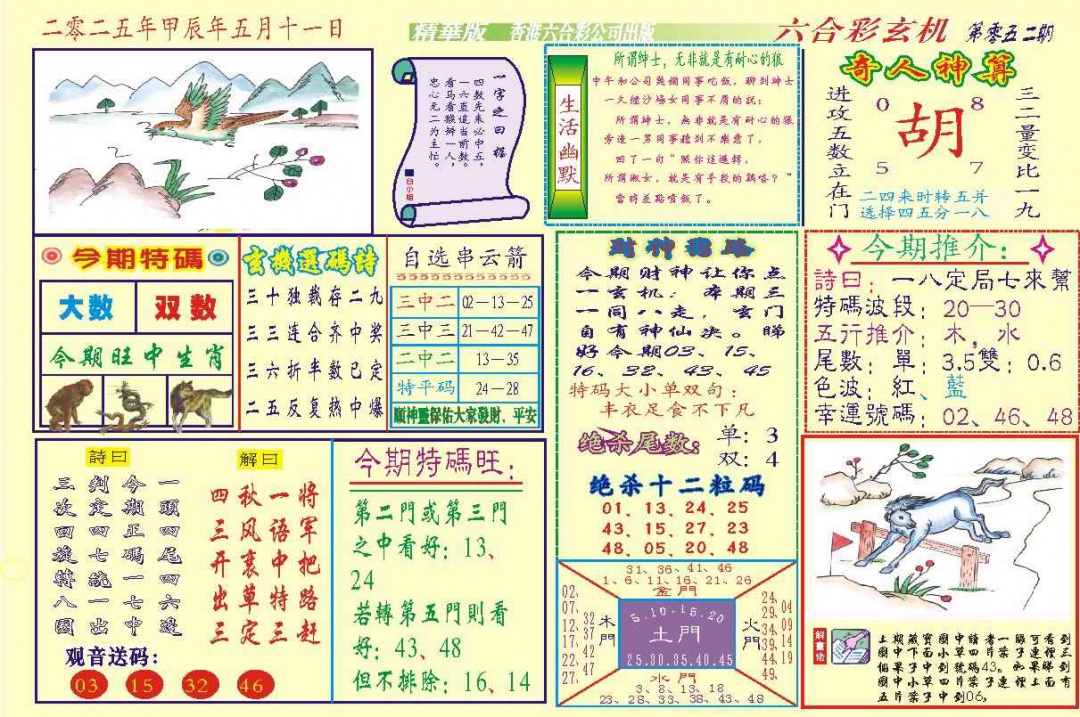 二零二五年甲辰年五月十一日
精華版 香港六合彩公司出版
六合彩玄机 第零五二期
一字之曰:榴
四数先来必中五，
一六直追当前数。
看马看猴蚌人，
忠心无二为主忙。
白小姐
生活幽默
所谓紳士，无非就是有耐心的狼
中午和公司與個同事吃飯，聊到紳士
一久經沙場女同事不屑的說：
所謂紳士，無非就是有耐心的狼
旁邊一男同事聽到不樂意了，
回了一句"照你這邏輯，
所謂淑女，就是有手段的鷄嗒？"
當時差點噴飯了。
奇人神算
进攻五数立在门
0 8
胡
5 7
三二量变比一九
二四来时转五并
选择四五分一八
今期特碼
大数 双数
今期旺中生肖
玄機選碼詩
三十独裁存二九
三三连合齐中奖
三六折半数已定
二五反复热中爆
自选串云箭
三中二 02—13—25
三中三 21—42—47
二中二 13—35
特平码 24—28
願神靈保佑大家發財、平安
財神
今期财神让你点
一玄机：本期三
一同八走，玄门
自有神仙决。睇
好今期03、15、
16、32、43、45
特码大小单双句：
丰衣足食不下凡
绝杀尾数： 单：3
双：4
绝杀十二粒码
01、13、24、25
43、15、27、23
48、05、20、48
今期推介：
詩曰：一八定局七來幫
特碼波段：20—30
五行推介：木，水
尾數：單：3.5雙：0.6
色波：紅、藍
幸運號碼：02、46、48
詩曰
一頭四尾四六邊
今期正碼一七中
判定四七統一出
三次回旋特八圍
解曰
将军把路赶
一语中特三
秋风裹草定
四三开出三
观音送码：
03 15 32 46
今期特碼旺：
第二門或第三門
之中看好：13、
24
若轉第五門則看
好：43、48
但不排除：16、14
31、36、41、46
1、6、11、16、21、26
金門
02、07、12、17、22、27、
32 37 42 47
木門
5.10-15.20
土門
25.30.35.40.45
火門
24、29、34、39、44、49、
04 09 14 19
水門
3、8、13、18
23、28、33、38、43、48
解畫佬
上期藏寶圖中請者一眼可看到
圖中下面小草四片葉子連裡三
個果子中到號碼43。如果睇到
圖中小草四片葉子連裡上面有
五片葉子中到06。